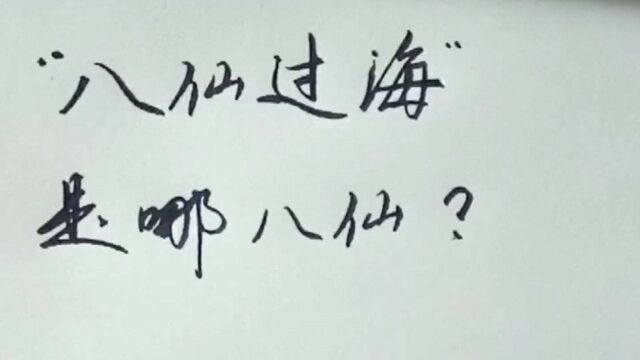 “八仙过海”
是哪八仙？